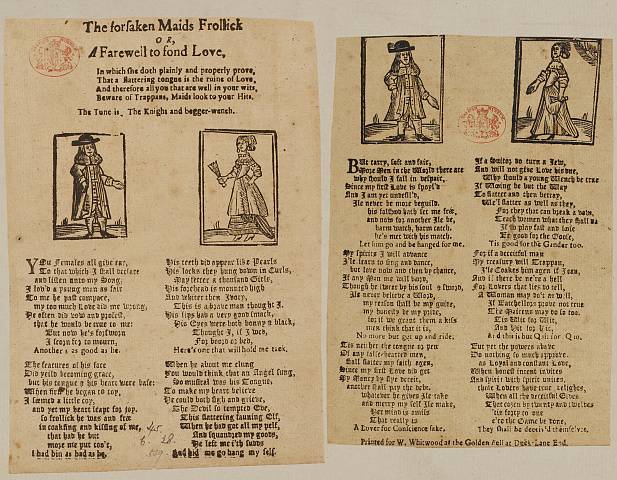 The forsaken Maids Frollick
OR,
A Farewell to fond Love,
In which she doth plainly and properly prove,
That a flattering tongue is the ruine of Love,
And therefore all you that are well in your wits,
Beware of Trappans, Maids look to your Hits.
The Tune is, The Knight and begger-wench.
YOu Females all give ear,
To that which I shall declare
and listen unto my Song,
I lov'd a young man as fair
To me he past compare,
my too much Love did me wrong,
He often did vow and protest,
that he would be true to me:
But now he's forsworn
I scorn for to mourn,
Another's as good as he.
The features of his face
Did yeild becoming grace,
but his tongue & his heart were base:
When first he began to toy,
I seemed a little coy,
and yet my heart leapt for joy.
so frollick he was and free
in coaksing and kissing of me,
that had he but
more me put too't,
I had bin as bad as he.
His teeth did appear like Pearls
His locks they hung down in Curls,
May seree a thousand Girls,
His forehead is mountain high
And whiter then Ivory,
This is a brave man thought I.
His lips have a very good smack,
His Eyes were both bonny & black,
Thought I, if I wed,
For board or bed,
Here's one that will hold me tack.
When he about me clung
You would think that an Angel sung,
So musical was his Tongue,
To make my heart believe
He could both sigh and grieve,
The Devil so tempted Eve,
This flattering fauning Elf,
When he had got all my pelf,
And squandred my goods,
He left me i'th suds
And bid me go hang my self.
BUt tarry, soft and fair,
More Men in the World there are
why should I fall in despair,
Since my first Love is spoyl'd
And I am yet undefil'd,
Ile never be more beguild.
his falshood hath set me free,
and now for another Ile be,
harm watch, harm catch,
he's met with his match.
Let him go and be hanged for me.
My spirits I will advance
Ile learn to sing and dance,
but love now and then by chance,
If any Man me will hard,
Though he swear by his soul & sword,
Ile never believe a Word,
my reason shall be my guide,
my honesty be my pride,
for if we grant them a kiss
men think that it is,
No more but get up and ride.
Tis neither the tongue or pen
Of any false-hearted men,
Shall flatter my faith agen,
Since my first Love did get
My Money by slye deceit,
another shall pay the debt.
whatever he gives Ile take
and merry my self Ile make,
Her mind is amiss
That really is
A Lover for Conscience sake.
If a Suitor do turn a Jew,
And will not give Love his due,
Why should a young Wench be true
If Wooing be but the Way
To flatter and then betray,
We'l flatter as well as they,
For they that can break a vow,
Teach women what they shall do
If so play fast and loose
Tis good for the Goose,
Tis good for the Gander too.
For if a deceitful man
My treasury will Trappan,
I'le Coakes him agen if I can,
And if there be ne'r a hell
For Lovers that lies to tell,
A Woman may do't as well,
If Watchfulness prove not true
The Patterns may do so too.
Tis Wit for Wit,
And Hit for Hit,
And this is but Quit for Quo.
But yet the powers above
Do nothing so much approve
as Loyal and constant Love,
When honest intent invites
And spirit with spirit unites,
their Lovers have true delights,
When all the deceitful Elves
That cozen by twenty and twelves
'tis forty to one
e're the Game be done,
They shall be deceiv'd themselves.
Printed for W. Whitwood at the Golden Bell at Duck-Lane End.